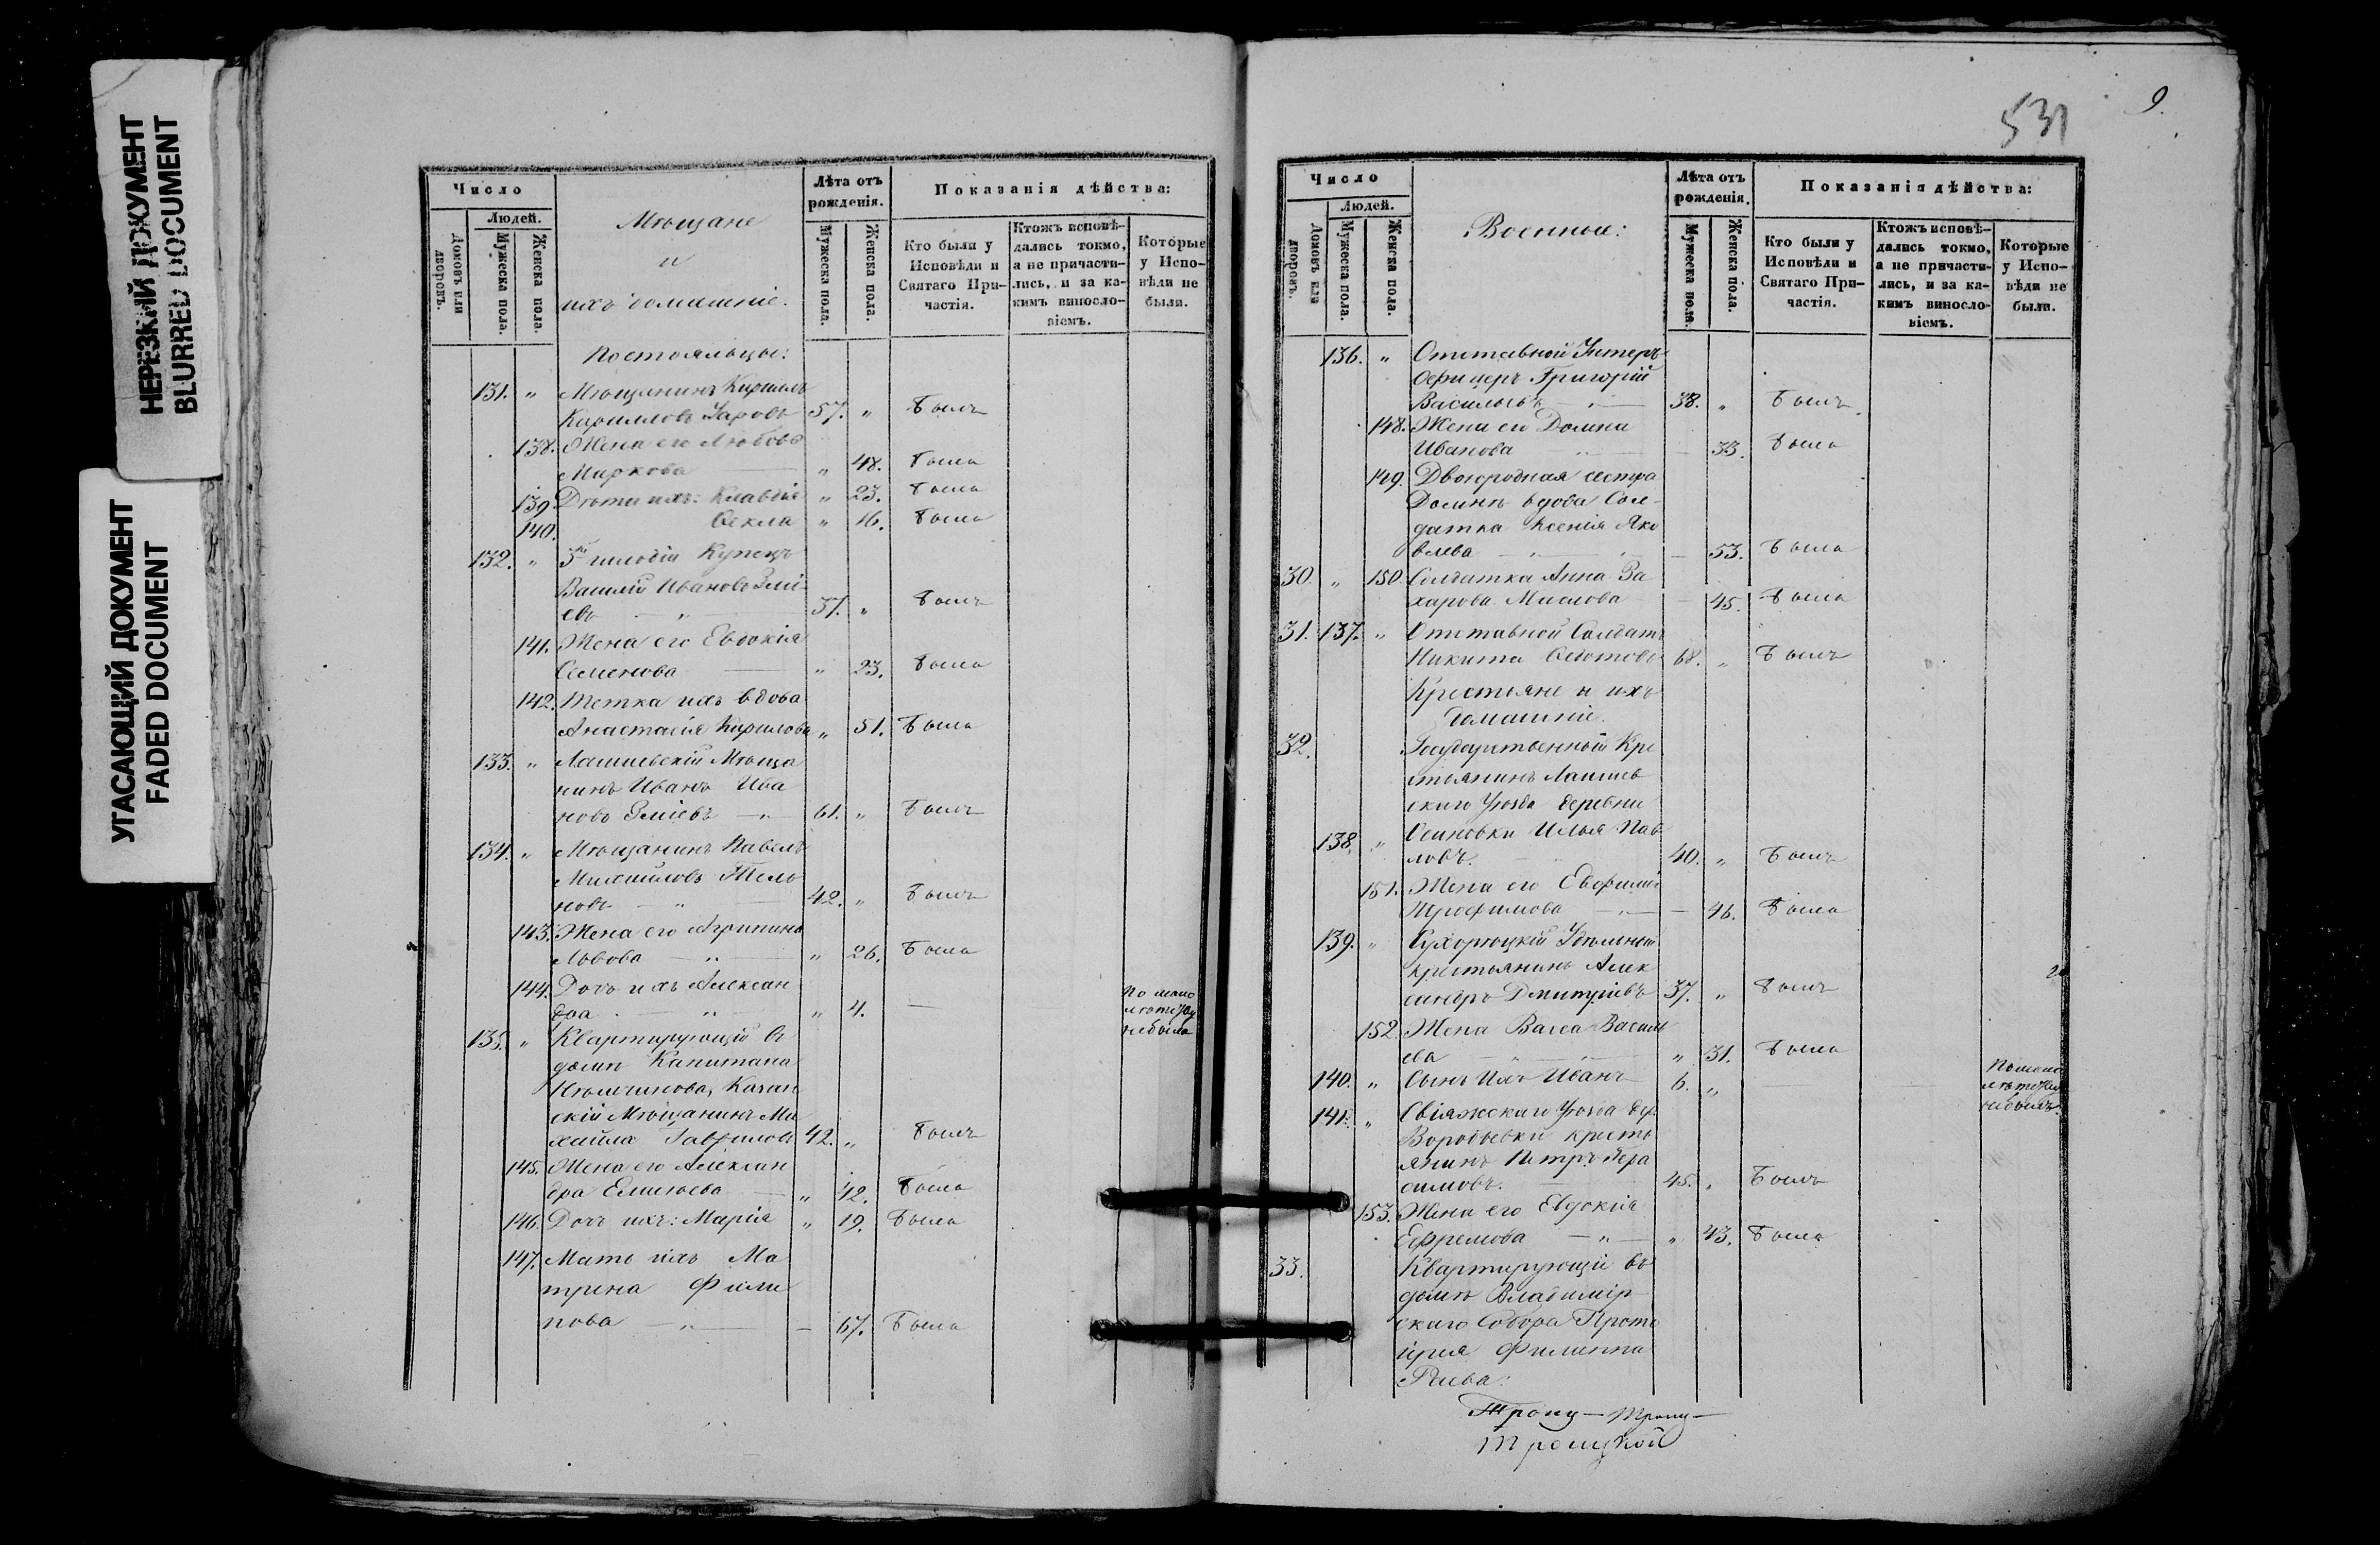 НЕРЕЗКИЙ ДОКУМЕНТ
BLURRED DOCUMENT
УГАСАЮЩИЙ ДОКУМЕНТ
FADED DOCUMENT
Число
Людей.
Домовъ или дворовъ.
Мужеска пола.
Женска пола.
Мѣщане
и
ихъ домашніе.
Лѣта отъ рожденія.
Мужеска пола.
Женска пола.
Показанія дѣйства:
Кто были у Исповѣди и Святаго При-частія.
Ктожъ исповѣ-дались токмо, а не причасти-лись, и за ка-кимъ виносло-віемъ.
Которые у Испо-вѣди не были.
Постояльцы:
131. „ Мѣщанинъ Кириллъ
Кирилловъ 57. „ Былъ
138. Жена его Любовь
Маркова „ 48. Была
139 Дѣти ихъ: Клавдія „ 23. Была
140. Ѳекла „ 16. Была
132. „ 3й гильдіи Купецъ
Василій Ивановъ Змі-
евъ „ 37. „ Былъ
141. Жена его Евдокія
Семенова „ 23. Была
142. Тетка ихъ вдова
Анастасія Кирилова „ 51. Была
133. „ Лаишевскій Мѣща
нинъ Иванъ Ива
новъ Зміевъ 61. „ Былъ
134. „ Мѣщанинъ Павелъ
Михайловъ
новъ „ 42. „ Былъ
143. Жена его Агрипина
Львова „ 26. Была
144. Дочь ихъ Алексан
дра „ 4. — По мало
лѣтству
небыла
135. „ Квартирующій въ
домѣ Капитана
Казан
скій Мѣщанинъ Ми
хайла Гавриловъ 42. „ Былъ
145. Жена его Алексан
дра Елисѣева „ 42. Была
146. Дочь ихъ: Марія „ 19. Была
147. Мать ихъ Ма
трена Фили
пова — 67. Была
531
9.
Число
Людей.
Домовъ или дворовъ.
Мужеска пола.
Женска пола.
Военные:
Лѣта отъ рожденія.
Мужеска пола.
Женска пола.
Показанія дѣйства:
Кто были у Исповѣди и Святаго При-частія.
Ктожъ исповѣ-дались токмо, а не причасти-лись, и за ка-кимъ виносло-віемъ.
Которые у Испо-вѣди не были.
136. „ Отставной Унтеръ
Офицеръ Григорій
Васильевъ 38. „ Былъ
148. Жена его Домна
Иванова — 33. Была
149. Двоюродная сестра
Домнѣ вдова Сол-
датка Ксенія Яко
влева — 53. Была
30. „ 150. Солдатка Анна За
харова Маслова — 45. Была
31. 137. „ Отставной Солдатъ
Никита Ѳедотовъ 68. „ Былъ
Крестьяне и ихъ
домашніе.
32. Государственный Кре
стьянинъ Лаишев
скаго Уѣзда деревни
138. „ Осиновки Илья Пав
ловъ. 40. „ Былъ
151. Жена его Евфимія
Трофимова — 46. Была
139. „ Удѣльный
крестьянинъ Алек
сандръ Дмитріевъ 37. „ Былъ
152. Жена Васса Василь
ева „ 31. Была
140. „ Сынъ Ихъ Иванъ 6. „ По мало
лѣтству
небылъ.
141. „ Свіяжскаго Уѣзда дер.
Воробьевки кресть
янинъ Петръ Гера
симовъ. 45. „ Былъ
153. Жена его Евдокія
Ефремова „ 43. Была
33. Квартирующій въ
домѣ Владимір
скаго Собора Прото
іерея Филиппа